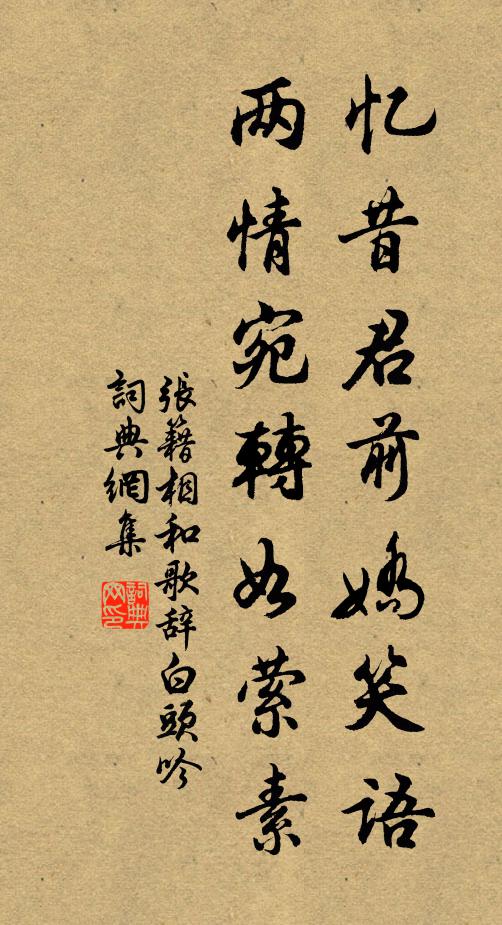 忆昔君前娇笑语
两情宛轉如萦素
張籍相和歌辞白頭吟
詞典網集
詞典网印